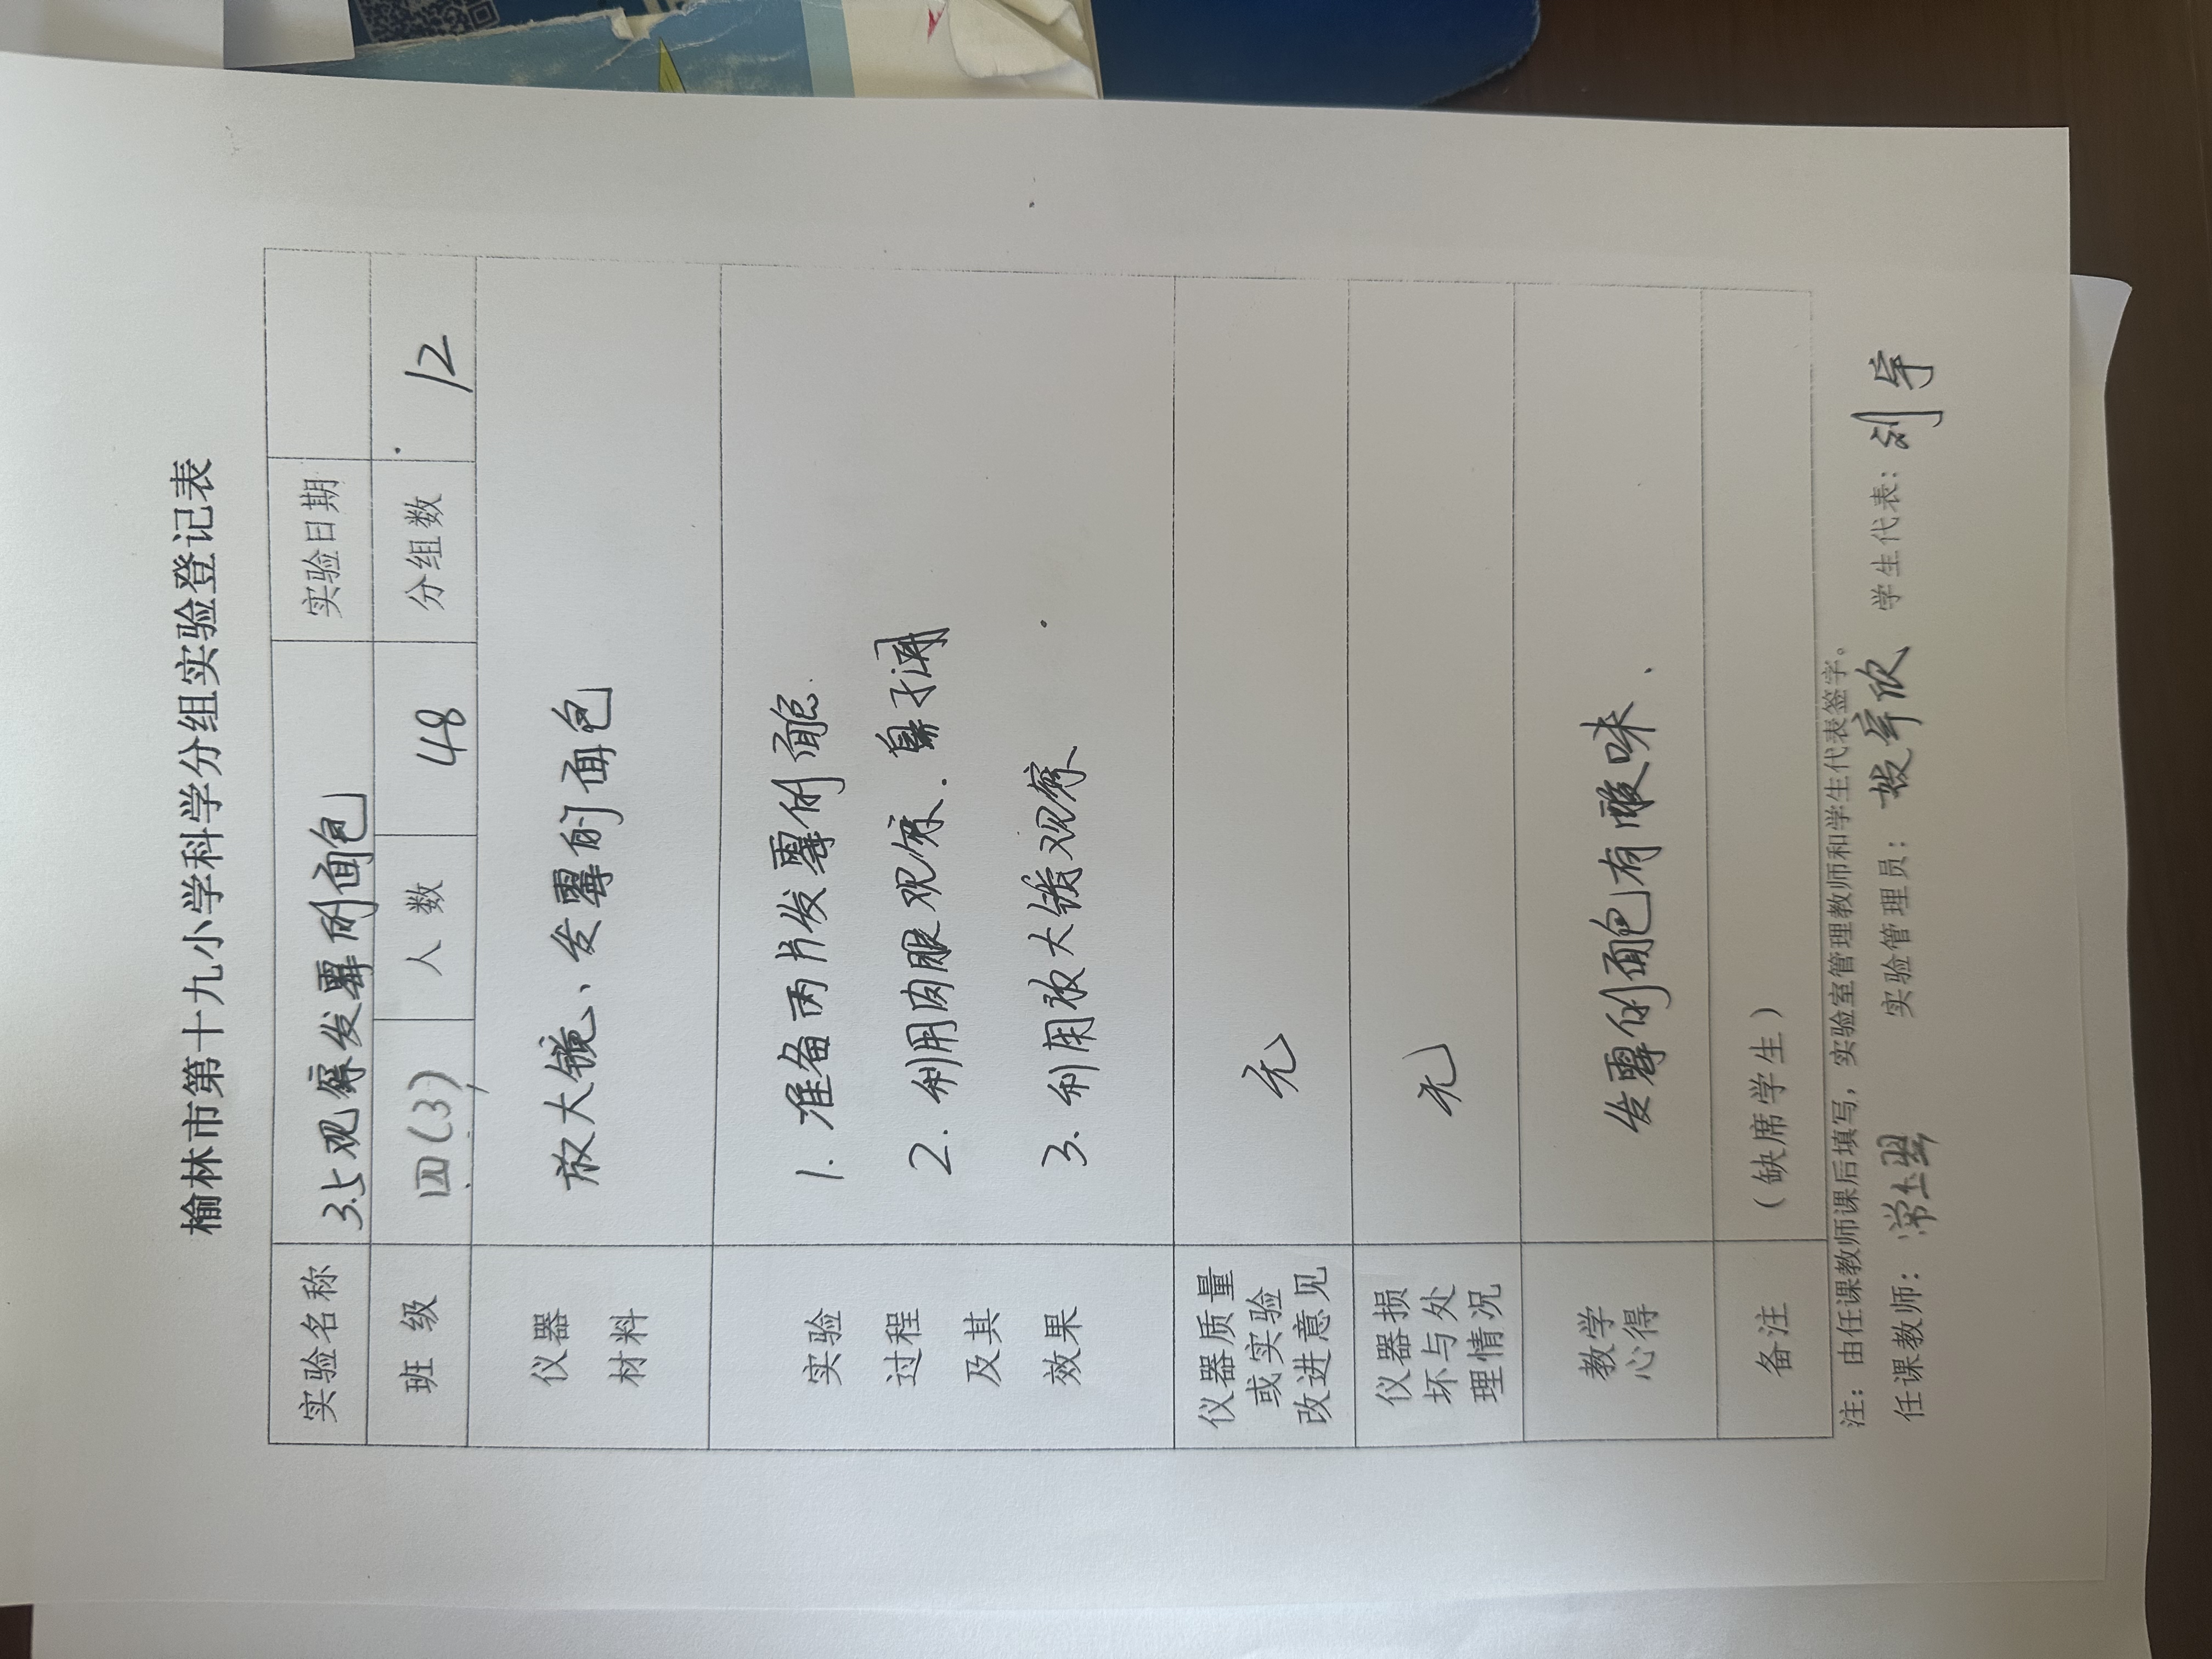 榆林市第十九小学科学分组实验登记表
实验名称 3.5观察发霉的面包 实验日期
班 级 四(3) 人 数 48 分组数 12
仪器
材料
放大镜、发霉的面包
实验
过程
及其
效果
1. 准备两片发霉的面包.
2. 利用肉眼观察. 鼻子闻
3. 利用放大镜观察
仪器质量
或实验
改进意见
无
仪器损
坏与处
理情况
无
教学
心得
发霉的面包有酸味.
备注 (缺席学生)
注：由任课教师课后填写，实验室管理教师和学生代表签字。
任课教师： 实验管理员： 学生代表：刘宇